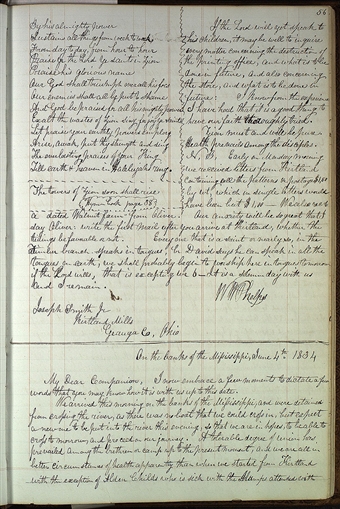 56
By his almighty power
Sustains all things from rock to
From day to day, from hour to hour
Praise ye the Lord ye saints in Zion
Praise his glorious name
Our God shall triumph over all his foes
Our enemies shall all be put to shame
And God be praised for all his mighty power
Exalt the wastes of Zion sing for joy
Let praise your earthly powers employ
Arise, awake, put thy strength and sing
The everlasting praises of your King
Till earth & heaven in
The towers of Zion soon shall rise
(Hymn book page 38)
If the Lord will yet speak to
his children, it may be well to inquire
every matter concerning the destruction of
the printing office, and what is to be
done in future, and also concerning
the store, and what is to be done in
future: I mean from the experience
I have had that it is a good thing to
have our faith thoroughly tried.
Zion must and will be pure or
Death prevails among the disciples.
N. B. Early on monday morning
we received letters from Kirtland
containing
by it, which in single letters would
have been but $1,00
a dated Walnut farm from Oliver. Our anxiety will be so great that I
day Oliver write the first mail after you arrive at Kirtland, whether the
tidings be favorable or not. Every one that is a saint or nearly so, in the
branch speaks in tongues, Br. David says he can speak in all the
tongues on earth; we shall probably begin to worship here in tongues
if the Lord wills, that is except It is a solemn day with us
and I remain.
W W Phelps
Joseph Smith Jr
Kirtland Mills
Geauga Co, Ohio
On the banks of the Mississippi, June 4th 1834
My Dear Companion, I now embrace a few moments to dictate a few
words that you may know how it is with us up to this date.
We arrived this morning on the banks of the Mississippi, and were detained
from crossing the river, as there was no boat that we could cross in, but expect
a new one to be put into the river this evening, so that we are in hopes to be able to
cross to morrow, and proceed on our journey. A tolerable degree of union has
prevailed among the brethren or camp up to the present moment, and we are all in
better circumstances of health apparently than when we started from Kirtland
with the exception of Elder Childs who is sick with the Mumps attended with